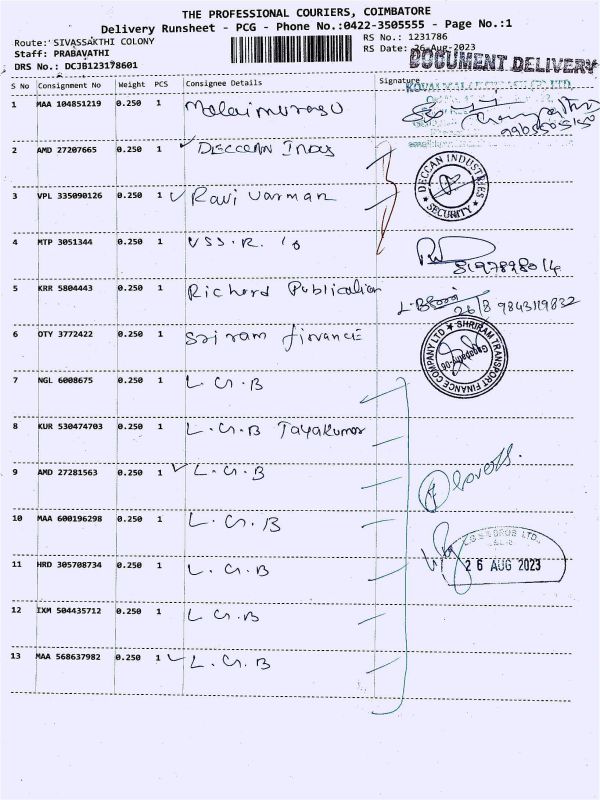 THE PROFESSIONAL COURIERS, COIMBATORE
Delivery Runsheet - PCG - Phone No.:0422-3505555 - Page No.:1
Route: SIVASSAKTHI COLONY
RS No.: 1231786
Staff: PRABAVATHI
RS Date: 26-Aug-2023
DRS No.: DCJB123178601
DOCUMENT DELIVERY
S No Consignment No Weight PCS Consignee Details Signature
1 MAA 104851219 0.250 1 Malaimurasu
2 AMD 27207665 0.250 1 DECCAN Indus
DECCAN INDUSTRIES
SECURITY
3 VPL 335090126 0.250 1 Ravi Varman
4 MTP 3051344 0.250 1 V.S.S.R.
8197898014
5 KRR 5804443 0.250 1 Richard Publication
26/8 9843119832
6 OTY 3772422 0.250 1 Sri ram finance
SHRIRAM TRANSPORT FINANCE COMPANY LTD
7 NGL 6008675 0.250 1 L.G.B
8 KUR 530474703 0.250 1 L.G.B Jayakumar
9 AMD 27281563 0.250 1 L.G.B
10 MAA 600196298 0.250 1 L.G.B
7 covers.
11 HRD 305708734 0.250 1 L.G.B
26 AUG 2023
12 IXM 504435712 0.250 1 L.G.B
13 MAA 568637982 0.250 1 L.G.B